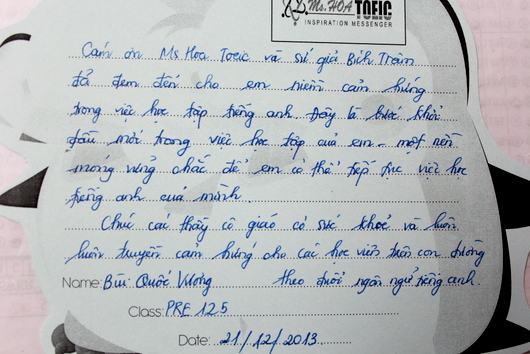 Ms. HOA TOEIC
INSPIRATION MESSENGER
Cảm ơn Ms Hoa Toeic và sứ giả Bích Trâm
đã đem đến cho em niềm cảm hứng
trong việc học tập tiếng anh. Đây là bước khởi
đầu mới trong việc học tập của em - một nền
móng vững chắc để em có thể tiếp tục việc học
tiếng anh của mình.
Chúc các thầy cô giáo có sức khoẻ và luôn
luôn truyền cảm hứng cho các học viên trên con đường
theo đuổi ngôn ngữ tiếng anh.
Name: Bùi Quốc Vương
Class: PRE 125
Date: 21/12/2013